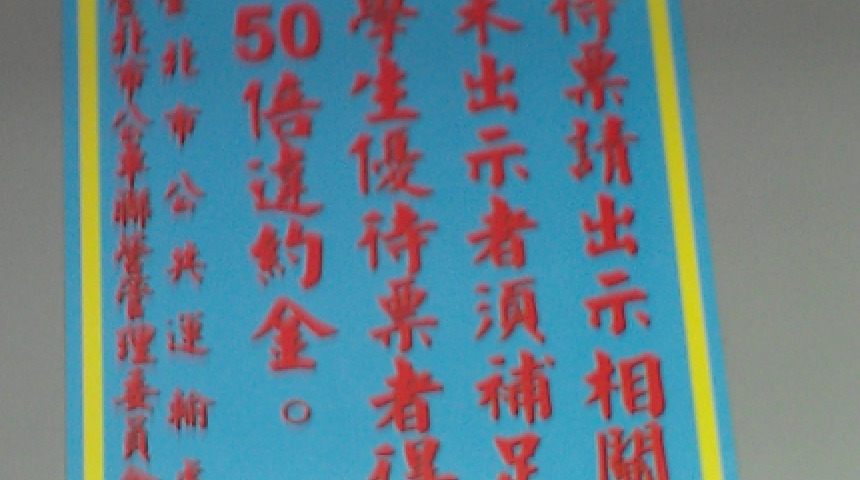 待票請出示相關
未出示者須補足
學生優待票者得
50倍違約金。
北市公共運輸
北市公車聯營管理委員